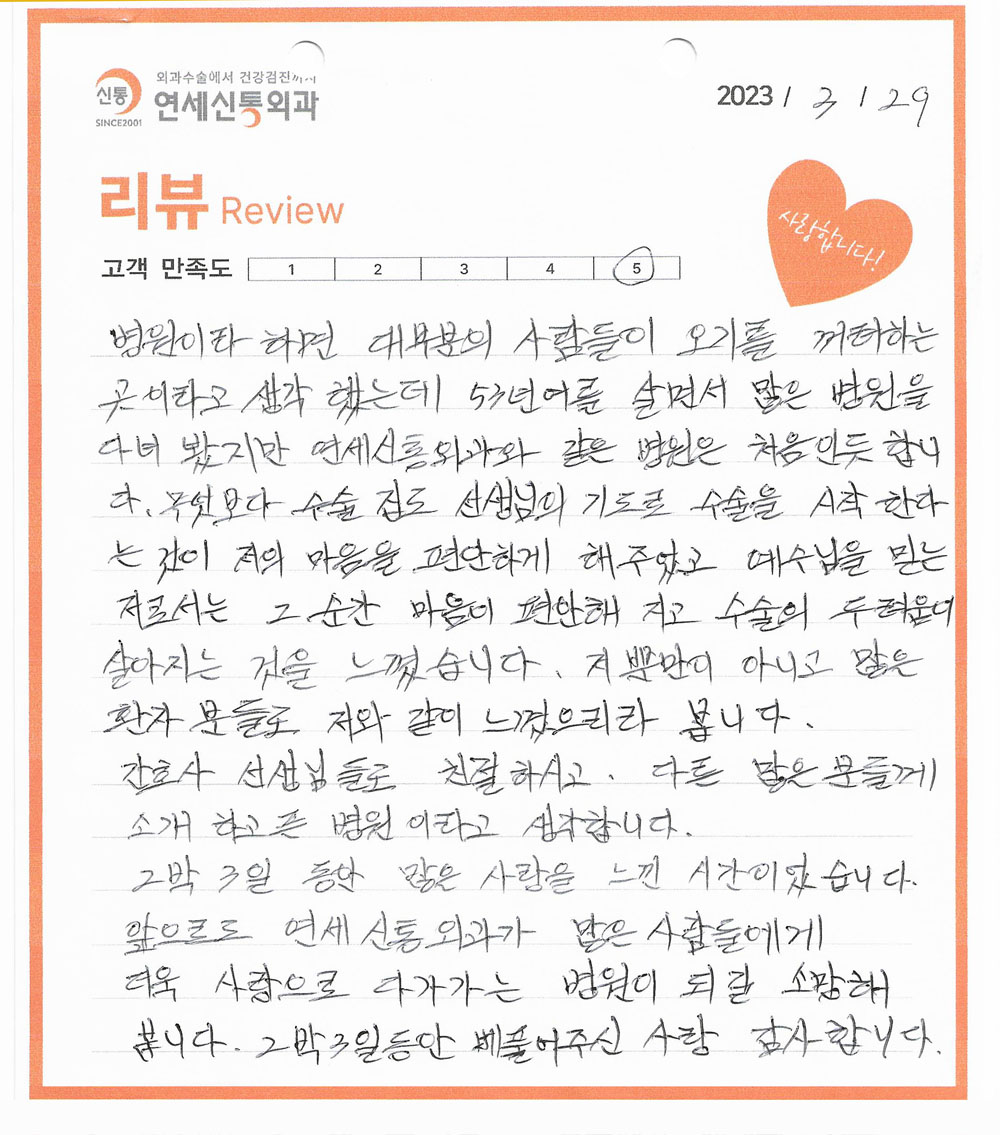 외과수술에서 건강검진까지
신통
연세신통외과
SINCE2001
2023 / 3 / 29
리뷰 Review
사랑합니다!
고객 만족도 1 2 3 4 5
병원이라 하면 대부분의 사람들이 오기를 꺼려하는
곳이라고 생각 했는데 53년여를 살면서 많은 병원을
다녀 봤지만 연세신통외과와 같은 병원은 처음인듯 합니
다. 무엇보다 수술 집도 선생님의 기도로 수술을 시작 한다
는 것이 저의 마음을 편안하게 해 주었고 예수님을 믿는
저로서는 그 순간 마음이 편안해 지고 수술의 두려움이
살아지는 것을 느꼈습니다. 저 뿐만이 아니고 많은
환자 분들도 저와 같이 느꼈으리라 봅니다.
간호사 선생님들도 친절하시고. 다른 많은 분들께
소개 하고픈 병원 이라고 생각합니다.
2박 3일 동안 많은 사랑을 느낀 시간이었습니다.
앞으로도 연세신통외과가 많은 사람들에게
더욱 사랑으로 다가가는 병원이 되길 소망해
봅니다. 2박3일동안 베풀어주신 사랑 감사합니다.